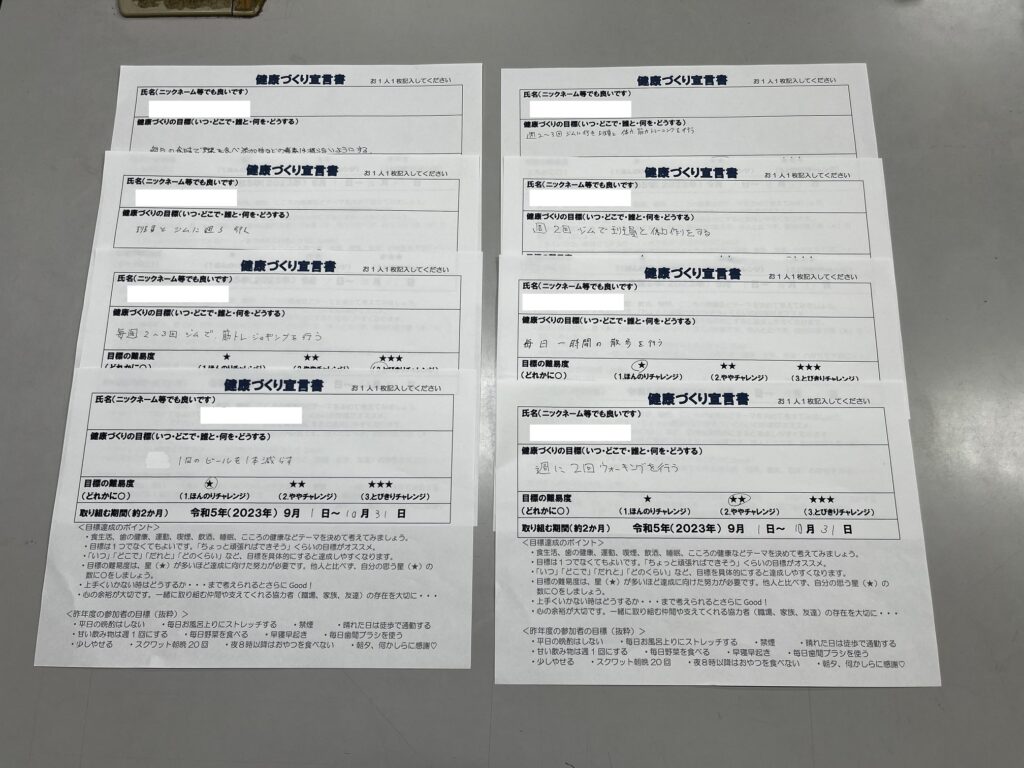 健康づくり宣言書 お1人1枚記入してください
氏名(ニックネーム等でも良いです)
健康づくりの目標(いつ・どこで・誰と・何を・どうする)
健康づくり宣言書 お1人1枚記入してください
氏名(ニックネーム等でも良いです)
健康づくりの目標(いつ・どこで・誰と・何を・どうする)
班員とジムに週3 行く
健康づくり宣言書 お1人1枚記入してください
氏名(ニックネーム等でも良いです)
健康づくりの目標(いつ・どこで・誰と・何を・どうする)
毎週2~3回ジムで筋トレジョギングを行う
目標の難易度 ★ ★★ ★★★
(どれかに○) (1.ほんのりチャレンジ) (2.ややチャレンジ) (3.とびきりチャレンジ)
健康づくり宣言書 お1人1枚記入してください
氏名(ニックネーム等でも良いです)
健康づくりの目標(いつ・どこで・誰と・何を・どうする)
1日のビールを1本減らす
目標の難易度 ★ ★★ ★★★
(どれかに○) (1.ほんのりチャレンジ) (2.ややチャレンジ) (3.とびきりチャレンジ)
取り組む期間(約2か月) 令和5年(2023年) 9月 1日~10月31日
<目標達成のポイント>
・食生活、歯の健康、運動、喫煙、飲酒、睡眠、こころの健康などテーマを決めて考えてみましょう。
・目標は1つでなくてもよいです。「ちょっと頑張ればできそう」くらいの目標がオススメ。
・「いつ」「どこで」「だれと」「どのくらい」など、目標を具体的にすると達成しやすくなります。
・目標の難易度は、星(★)が多いほど達成に向けた努力が必要です。他人と比べず、自分の思う星(★)の
数に○をしましょう。
・上手くいかない時はどうするか・・・まで考えられるとさらにGood!
・心の余裕が大切です。一緒に取り組む仲間や支えてくれる協力者(職場、家族、友達)の存在を大切に・・・
<昨年度の参加者の目標(抜粋)>
・平日の晩酌はしない ・毎日お風呂上りにストレッチする ・禁煙 ・晴れた日は徒歩で通勤する
・甘い飲み物は週1回にする ・毎日野菜を食べる ・早寝早起き ・毎日歯間ブラシを使う
・少しやせる ・スクワット朝晩20回 ・夜8時以降はおやつを食べない ・朝夕、何かしらに感謝♡
健康づくり宣言書 お1人1枚記入してください
氏名(ニックネーム等でも良いです)
健康づくりの目標(いつ・どこで・誰と・何を・どうする)
健康づくり宣言書 お1人1枚記入してください
氏名(ニックネーム等でも良いです)
健康づくりの目標(いつ・どこで・誰と・何を・どうする)
週2回ジムで班員と体力作りをする
健康づくり宣言書 お1人1枚記入してください
氏名(ニックネーム等でも良いです)
健康づくりの目標(いつ・どこで・誰と・何を・どうする)
毎日一時間の散歩を行う
目標の難易度 ★ ★★ ★★★
(どれかに○) (1.ほんのりチャレンジ) (2.ややチャレンジ) (3.とびきりチャレンジ)
健康づくり宣言書 お1人1枚記入してください
氏名(ニックネーム等でも良いです)
健康づくりの目標(いつ・どこで・誰と・何を・どうする)
週に2回ウォーキングを行う
目標の難易度 ★ ★★ ★★★
(どれかに○) (1.ほんのりチャレンジ) (2.ややチャレンジ) (3.とびきりチャレンジ)
取り組む期間(約2か月) 令和5年(2023年) 9月 1日~10月31日
<目標達成のポイント>
・食生活、歯の健康、運動、喫煙、飲酒、睡眠、こころの健康などテーマを決めて考えてみましょう。
・目標は1つでなくてもよいです。「ちょっと頑張ればできそう」くらいの目標がオススメ。
・「いつ」「どこで」「だれと」「どのくらい」など、目標を具体的にすると達成しやすくなります。
・目標の難易度は、星(★)が多いほど達成に向けた努力が必要です。他人と比べず、自分の思う星(★)の
数に○をしましょう。
・上手くいかない時はどうするか・・・まで考えられるとさらにGood!
・心の余裕が大切です。一緒に取り組む仲間や支えてくれる協力者(職場、家族、友達)の存在を大切に・・・
<昨年度の参加者の目標(抜粋)>
・平日の晩酌はしない ・毎日お風呂上りにストレッチする ・禁煙 ・晴れた日は徒歩で通勤する
・甘い飲み物は週1回にする ・毎日野菜を食べる ・早寝早起き ・毎日歯間ブラシを使う
・少しやせる ・スクワット朝晩20回 ・夜8時以降はおやつを食べない ・朝夕、何かしらに感謝♡